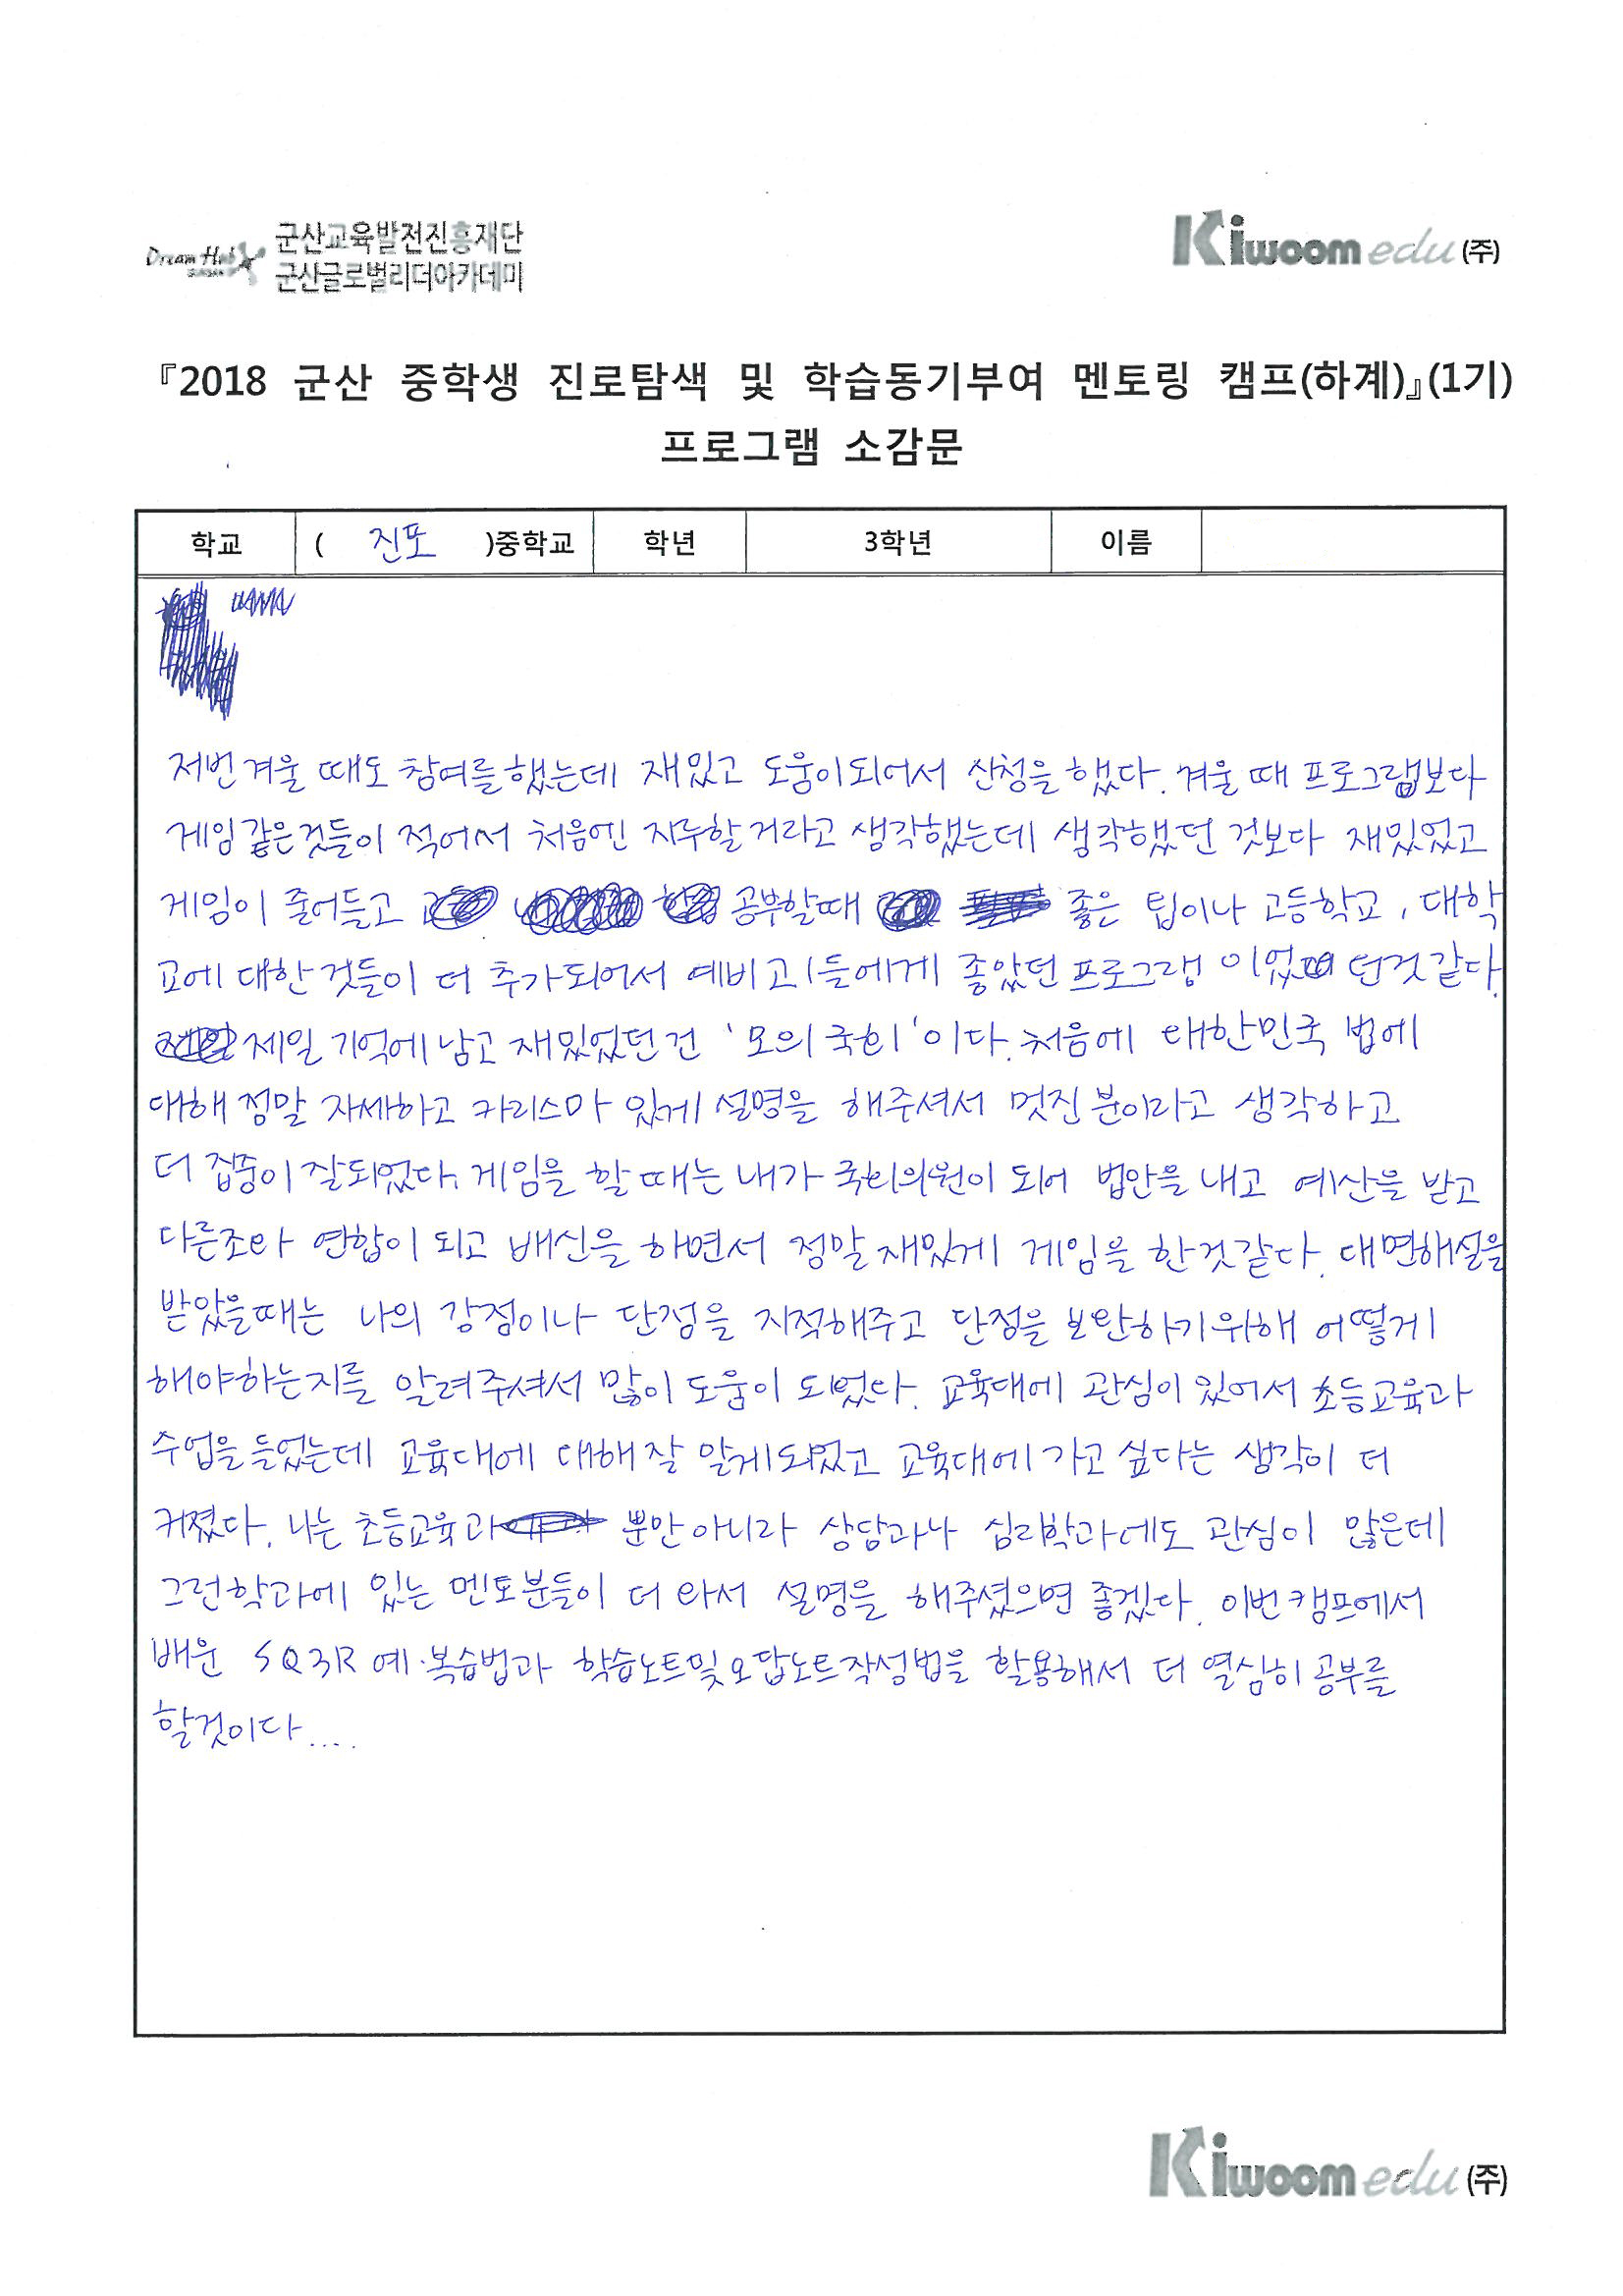 Dream Hub 군산교육발전진흥재단
군산글로벌리더아카데미
Kiwoom edu (주)
『2018 군산 중학생 진로탐색 및 학습동기부여 멘토링 캠프(하계)』(1기)
프로그램 소감문
학교 ( 진포 )중학교 학년 3학년 이름
저번 겨울 때도 참여를 했는데 재밌고 도움이 되어서 신청을 했다. 겨울 때 프로그램보다
게임 같은것들이 적어서 처음엔 지루할 거라고 생각했는데 생각했던 것보다 재밌었고
게임이 줄어들고 공부할때 좋은 팁이나 고등학교, 대학
교에 대한 것들이 더 추가되어서 예비고1들에게 좋았던 프로그램 이었던것 같다.
제일 기억에 남고 재밌었던건 '모의국회'이다. 처음에 대한민국 법에
대해 정말 자세하고 카리스마 있게 설명을 해주셔서 멋진 분이라고 생각하고
더 집중이 잘되었다. 게임을 할 때는 내가 국회의원이 되어 법안을 내고 예산을 받고
다른조와 연합이 되고 배신을 하면서 정말 재밌게 게임을 한것같다. 대면해설을
받았을때는 나의 강점이나 단점을 지적해주고 단점을 보완하기위해 어떻게
해야하는지를 알려주셔서 많이 도움이 되었다. 교육대에 관심이 있어서 초등교육과
수업을 들었는데 교육대에 대해 잘 알게되었고 교육대에 가고 싶다는 생각이 더
커졌다. 나는 초등교육과 뿐만 아니라 상담과나 심리학과에도 관심이 많은데
그런학과에 있는 멘토분들이 더 와서 설명을 해주셨으면 좋겠다. 이번 캠프에서
배운 SQ3R 예·복습법과 학습노트및오답노트작성법을 활용해서 더 열심히 공부를
할것이다....
Kiwoom edu (주)